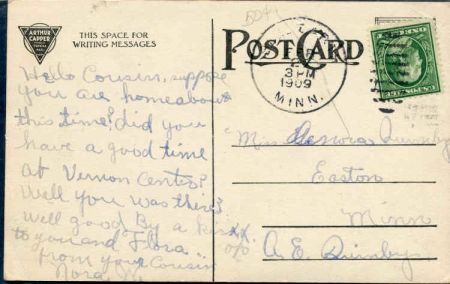 BD44
ARTHUR
CAPPER
TOPEKA
KAN.
THIS SPACE FOR
WRITING MESSAGES
POST CARD
3 PM
1909
MINN.
Hello Cousin, suppose
you are home about
this time? did you
have a good time
at Vernon Center?
Well you was there?
Well good By a kiss xx
to you and "Flora" o/o
from your Cousin
Nora M
"Miss Lenora Quimby
Easton
Minn
A.E. Quimby